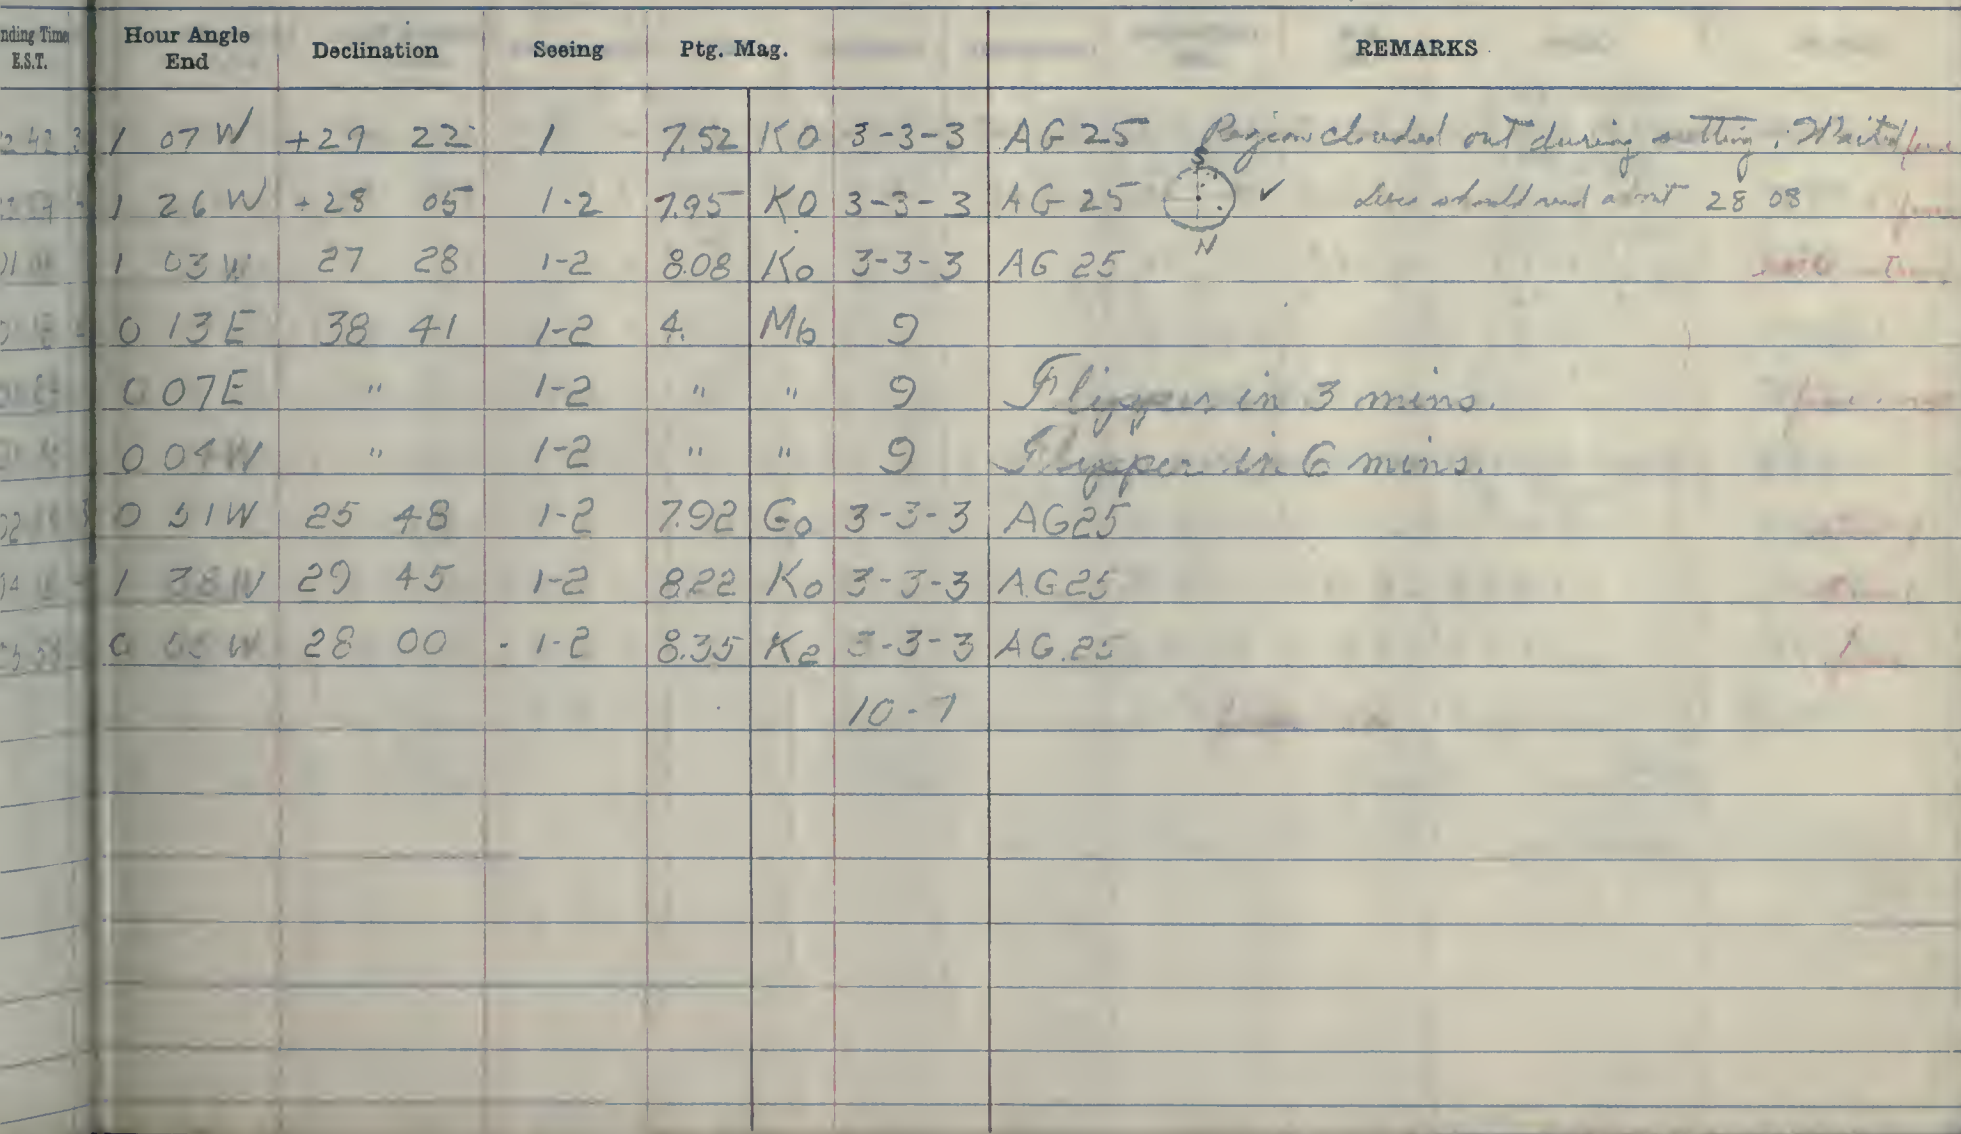 nding Time E.S.T. Hour Angle End Declination Seeing Ptg. Mag. REMARKS
1 07 W +29 22 1 7.52 K0 3-3-3 AG 25 Region clouded out during setting. Waited
S
1 26 W +28 05 1-2 7.95 K0 3-3-3 AG 25 ✓ should read 28 08
N
1 03 W 27 28 1-2 8.08 K0 3-3-3 AG 25
0 13 E 38 41 1-2 4. Mb 9
0 07 E " 1-2 " " 9 Flipper in 3 mins.
0 04 W " 1-2 " " 9 Flipper in 6 mins.
0 51 W 25 48 1-2 7.92 G0 3-3-3 AG 25
1 38 W 29 45 1-2 8.22 K0 3-3-3 AG 25
0 W 28 00 1-2 8.35 K2 3-3-3 AG 25
10-7